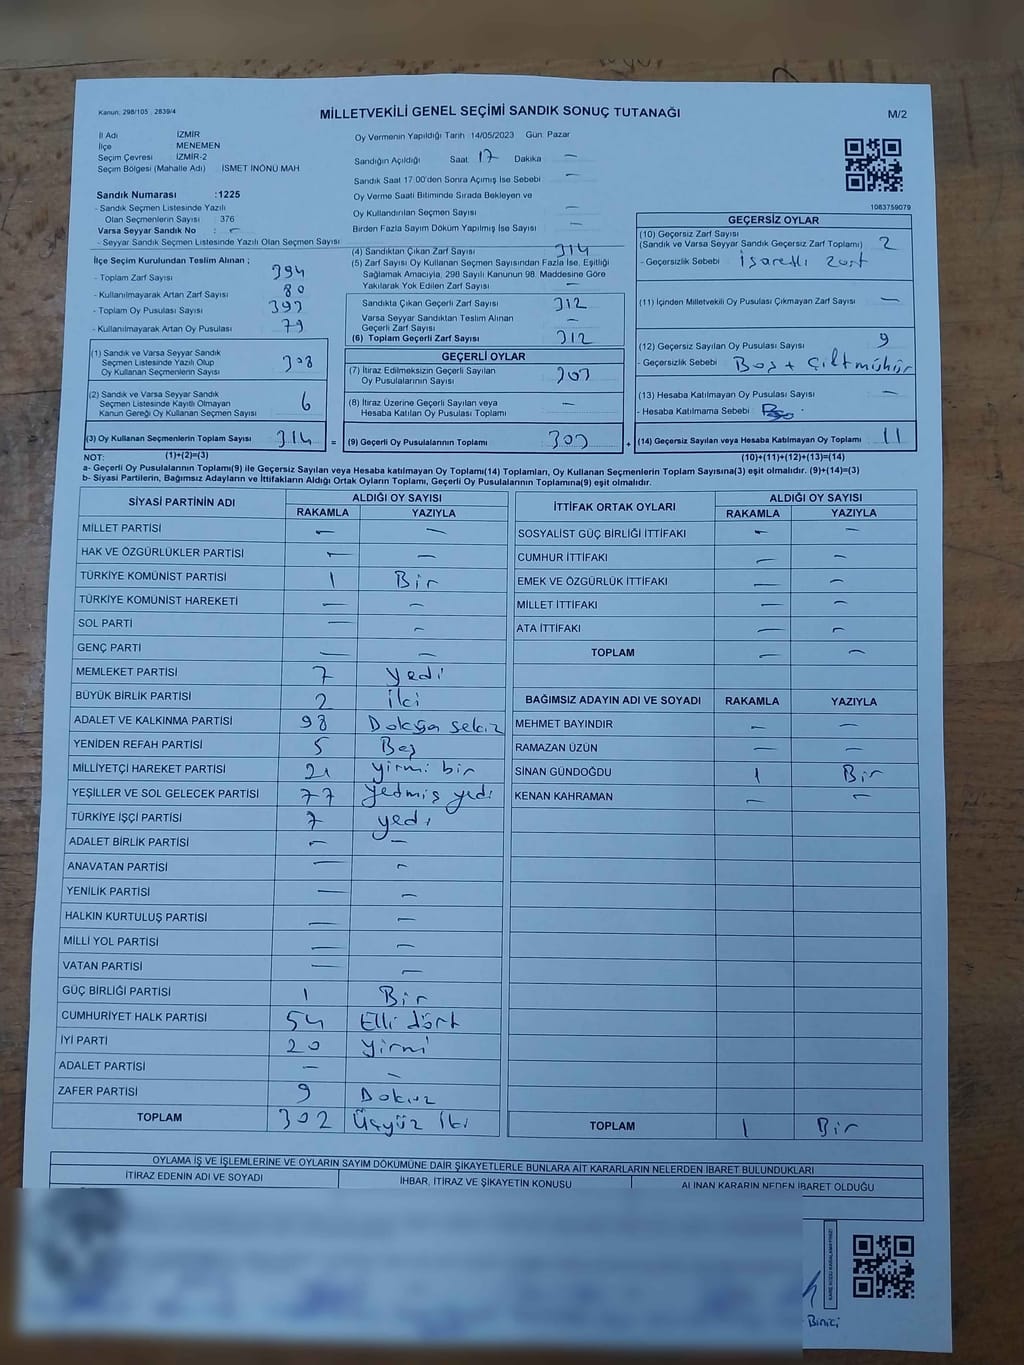 Kanun: 298/105 2839/4
MİLLETVEKİLİ GENEL SEÇİMİ SANDIK SONUÇ TUTANAĞI
M/2
İl Adı İZMİR
İlçe MENEMEN
Seçim Çevresi İZMİR-2
Seçim Bölgesi (Mahalle Adı) İSMET İNÖNÜ MAH
Sandık Numarası :1225
- Sandık Seçmen Listesinde Yazılı
Olan Seçmenlerin Sayısı : 376
Varsa Seyyar Sandık No : -
- Seyyar Sandık Seçmen Listesinde Yazılı Olan Seçmen Sayısı
Oy Vermenin Yapıldığı Tarih 14/05/2023 Gün: Pazar
Sandığın Açıldığı Saat 17 Dakika —
Sandık Saat 17:00'den Sonra Açılmış İse Sebebi —
Oy Verme Saati Bitiminde Sırada Bekleyen ve
Oy Kullandırılan Seçmen Sayısı —
Birden Fazla Sayım Döküm Yapılmış İse Sayısı —
1083759079
İlçe Seçim Kurulundan Teslim Alınan ;
- Toplam Zarf Sayısı 394
- Kullanılmayarak Artan Zarf Sayısı 80
- Toplam Oy Pusulası Sayısı 393
- Kullanılmayarak Artan Oy Pusulası 79
(1) Sandık ve Varsa Seyyar Sandık
Seçmen Listesinde Yazılı Olup
Oy Kullanan Seçmenlerin Sayısı 308
(2) Sandık ve Varsa Seyyar Sandık
Seçmen Listesinde Kayıtlı Olmayan
Kanun Gereği Oy Kullanan Seçmen Sayısı 6
(3) Oy Kullanan Seçmenlerin Toplam Sayısı 314 =
(4) Sandıktan Çıkan Zarf Sayısı 314
(5) Zarf Sayısı Oy Kullanan Seçmen Sayısından Fazla İse, Eşitliği
Sağlamak Amacıyla, 298 Sayılı Kanunun 98. Maddesine Göre
Yakılarak Yok Edilen Zarf Sayısı —
Sandıkta Çıkan Geçerli Zarf Sayısı 312
Varsa Seyyar Sandıktan Teslim Alınan
Geçerli Zarf Sayısı —
(6) Toplam Geçerli Zarf Sayısı 312
GEÇERLİ OYLAR
(7) İtiraz Edilmeksizin Geçerli Sayılan
Oy Pusulalarının Sayısı 303
(8) İtiraz Üzerine Geçerli Sayılan veya
Hesaba Katılan Oy Pusulası Toplamı —
(9) Geçerli Oy Pusulalarının Toplamı 303 +
GEÇERSİZ OYLAR
(10) Geçersiz Zarf Sayısı
(Sandık ve Varsa Seyyar Sandık Geçersiz Zarf Toplamı) 2
- Geçersizlik Sebebi işaretli zarf
(11) İçinden Milletvekili Oy Pusulası Çıkmayan Zarf Sayısı —
(12) Geçersiz Sayılan Oy Pusulası Sayısı 9
- Geçersizlik Sebebi Boş + Çift mühür
(13) Hesaba Katılmayan Oy Pusulası Sayısı —
- Hesaba Katılmama Sebebi
(14) Geçersiz Sayılan veya Hesaba Katılmayan Oy Toplamı 11
NOT: (1)+(2)=(3) (10)+(11)+(12)+(13)=(14)
a- Geçerli Oy Pusulalarının Toplamı(9) ile Geçersiz Sayılan veya Hesaba katılmayan Oy Toplamı(14) Toplamları, Oy Kullanan Seçmenlerin Toplam Sayısına(3) eşit olmalıdır. (9)+(14)=(3)
b- Siyasi Partilerin, Bağımsız Adayların ve İttifakların Aldığı Ortak Oyların Toplamı, Geçerli Oy Pusulalarının Toplamına(9) eşit olmalıdır.
SİYASİ PARTİNİN ADI ALDIĞI OY SAYISI
RAKAMLA YAZIYLA
MİLLET PARTİSİ — —
HAK VE ÖZGÜRLÜKLER PARTİSİ — —
TÜRKİYE KOMÜNİST PARTİSİ 1 Bir
TÜRKİYE KOMÜNİST HAREKETİ — —
SOL PARTİ — —
GENÇ PARTİ — —
MEMLEKET PARTİSİ 7 yedi
BÜYÜK BİRLİK PARTİSİ 2 iki
ADALET VE KALKINMA PARTİSİ 98 Doksan sekiz
YENİDEN REFAH PARTİSİ 5 Beş
MİLLİYETÇİ HAREKET PARTİSİ 21 yirmi bir
YEŞİLLER VE SOL GELECEK PARTİSİ 77 yetmiş yedi
TÜRKİYE İŞÇİ PARTİSİ 7 yedi
ADALET BİRLİK PARTİSİ — —
ANAVATAN PARTİSİ — —
YENİLİK PARTİSİ — —
HALKIN KURTULUŞ PARTİSİ — —
MİLLİ YOL PARTİSİ — —
VATAN PARTİSİ — —
GÜÇ BİRLİĞİ PARTİSİ 1 Bir
CUMHURİYET HALK PARTİSİ 54 Elli dört
İYİ PARTİ 20 yirmi
ADALET PARTİSİ — —
ZAFER PARTİSİ 9 Dokuz
TOPLAM 302 Üçyüz iki
İTTİFAK ORTAK OYLARI ALDIĞI OY SAYISI
RAKAMLA YAZIYLA
SOSYALİST GÜÇ BİRLİĞİ İTTİFAKI — —
CUMHUR İTTİFAKI — —
EMEK VE ÖZGÜRLÜK İTTİFAKI — —
MİLLET İTTİFAKI — —
ATA İTTİFAKI — —
TOPLAM — —
BAĞIMSIZ ADAYIN ADI VE SOYADI RAKAMLA YAZIYLA
MEHMET BAYINDIR — —
RAMAZAN ÜZÜN — —
SİNAN GÜNDOĞDU 1 Bir
KENAN KAHRAMAN — —
TOPLAM 1 Bir
OYLAMA İŞ VE İŞLEMLERİNE VE OYLARIN SAYIM DÖKÜMÜNE DAİR ŞİKAYETLERLE BUNLARA AİT KARARLARIN NELERDEN İBARET BULUNDUKLARI
İTİRAZ EDENİN ADI VE SOYADI İHBAR, İTİRAZ VE ŞİKAYETİN KONUSU ALINAN KARARIN NEDEN İBARET OLDUĞU
Binici